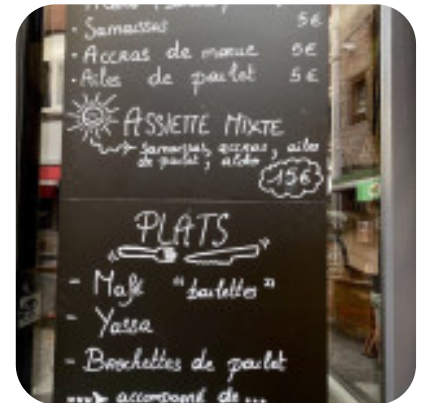 - Samoussas 5€
- Accras de morue 5€
- Ailes de poulet 5€
ASSIETTE MIXTE
samoussas, accras, ailes
de poulet, aloko
15€
PLATS
- Mafé "boulettes"
- Yassa
- Brochettes de poulet
accompagné de...